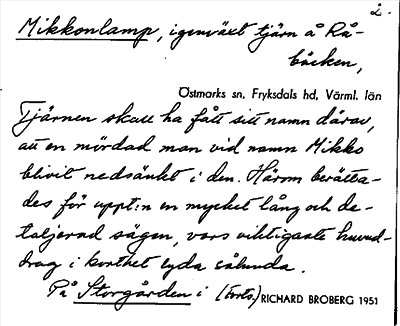 2.
Mikkonlamp, igenväxt tjärn å Rå-
bäcken,
Östmarks sn, Fryksdals hd, Värml. län
Tjärnen skall ha fått sitt namn därav,
att en mördad man vid namn Mikko
blivit nedsänkt i den. Härom berätta-
des för uppt:n en mycket lång och de-
taljerad sägen, vars viktigaste huvud-
drag i korthet lyda sålunda.
På Storgården i (forts.) RICHARD BROBERG 1951